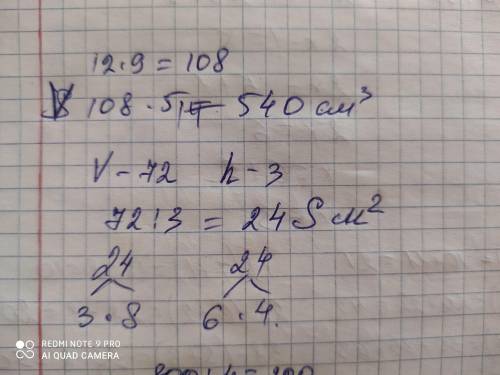 12.9 = 108
108 . 5 = 540 см³
V - 72 h - 3
72:3 = 24 S м²
24 24
3 . 8 6 . 4.
REDMI NOTE 9 PRO
AI QUAD CAMERA